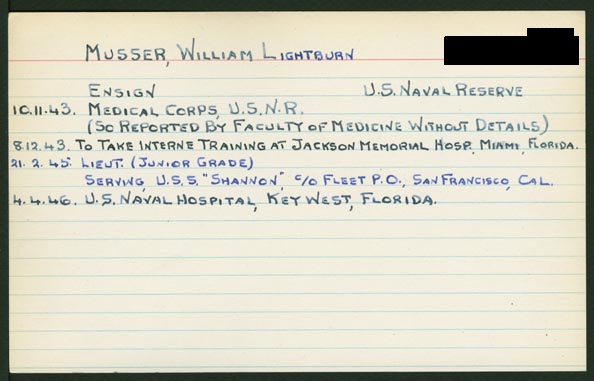 MUSSER, WILLIAM LIGHTBURN
ENSIGN U.S. NAVAL RESERVE
10.11.43. MEDICAL CORPS, U.S.N.R.
(SO REPORTED BY FACULTY OF MEDICINE WITHOUT DETAILS)
8.12.43. TO TAKE INTERNE TRAINING AT JACKSON MEMORIAL HOSP, MIAMI, FLORIDA.
21.2.45. LIEUT. (JUNIOR GRADE)
SERVING, U.S.S. "SHANNON", c/o FLEET P.O., SAN FRANCISCO, CAL.
4.4.46. U.S. NAVAL HOSPITAL, KEY WEST, FLORIDA.